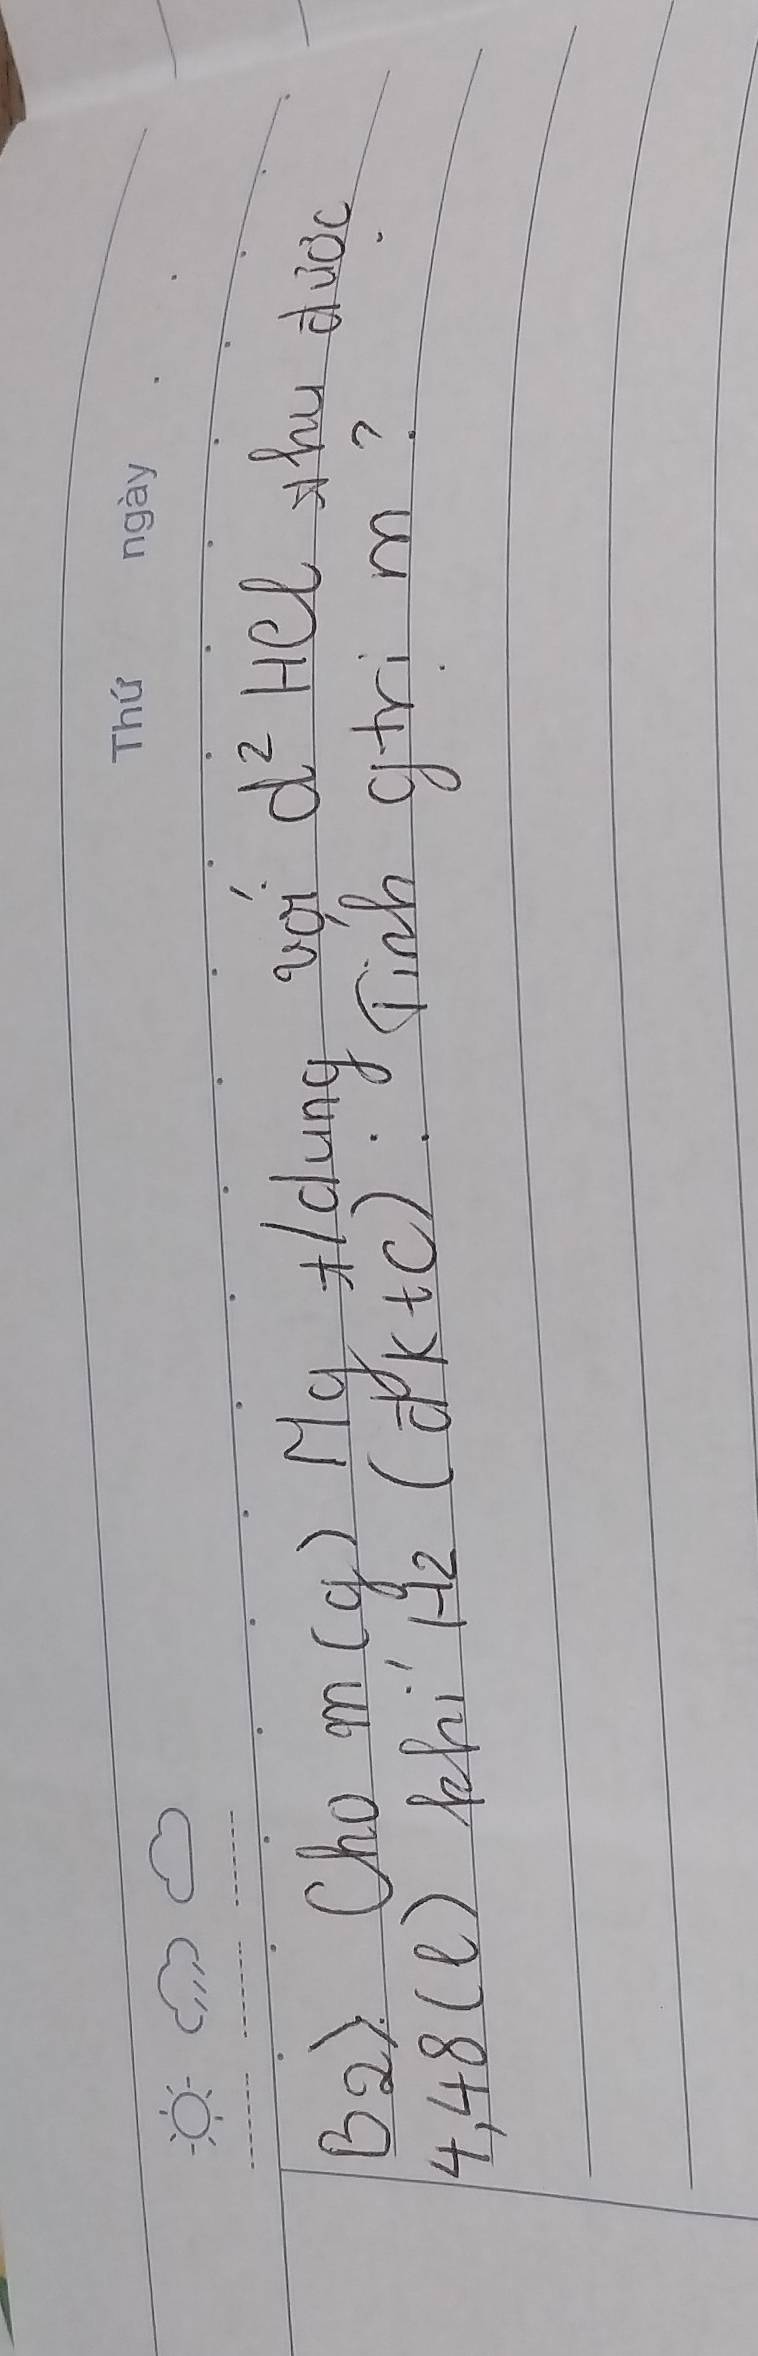 Thứ ngày
B2) Cho m(g) Mg t/dụng với d² HCl thu được
4,48(l) khí H₂ (đktc). Tính gtrị m?